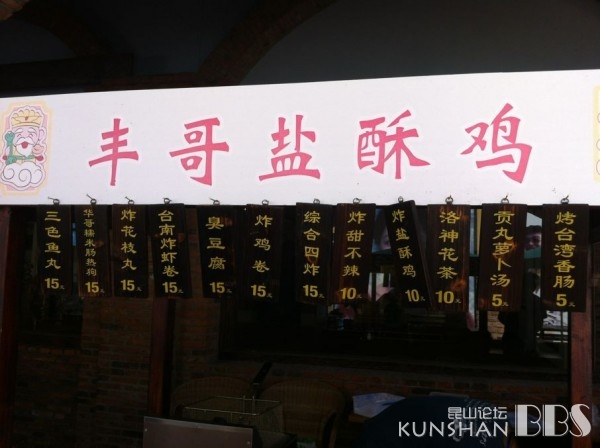 丰哥盐酥鸡
三色鱼丸 15元
华哥糯米肠热狗 15元
炸花枝丸 15元
台南炸虾卷 15元
臭豆腐 15元
炸鸡卷 15元
综合四炸 15元
炸甜不辣 10元
炸盐酥鸡 10元
洛神花茶 10元
贡丸萝卜汤 5元
烤台湾香肠 5元
昆山论坛
KUNSHAN BBS